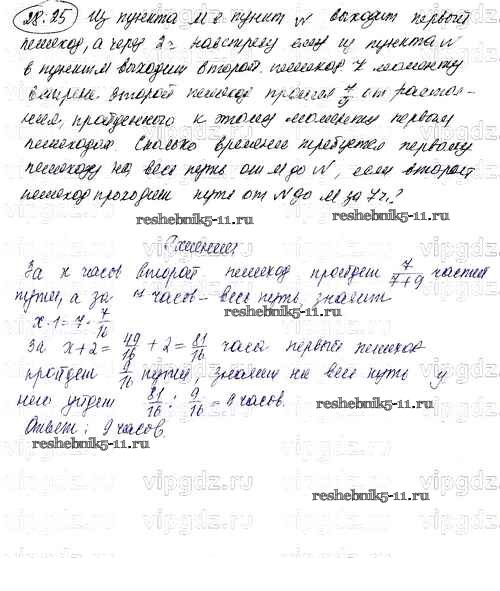 28.25 Из пункта М в пункт N выходит первый
пешеход, а через 2ч навстречу ему из пункта N
в пункт М выходит второй пешеход. К моменту
встречи второй пешеход прошел 7/9 от расстоя-
ния, пройденного к этому моменту первым
пешеходом. Сколько времени требуется первому
пешеходу на весь путь от М до N, если второй
пешеход проходит путь от N до М за 7ч?
reshebnik5-11.ru
Решение
За x часов второй пешеход пройдет 7/7+9 частей
пути, а за 7 часов - весь путь, значит
reshebnik5-11.ru
x·1=7·7/16
За x+2=49/16+2=81/16 часа первый пешеход
пройдет 9/16 пути, значит на весь путь у
него уйдет 81/16 : 9/16 = 9 часов.
Ответ: 9 часов.
reshebnik5-11.ru
reshebnik5-11.ru
vipgdz.ru